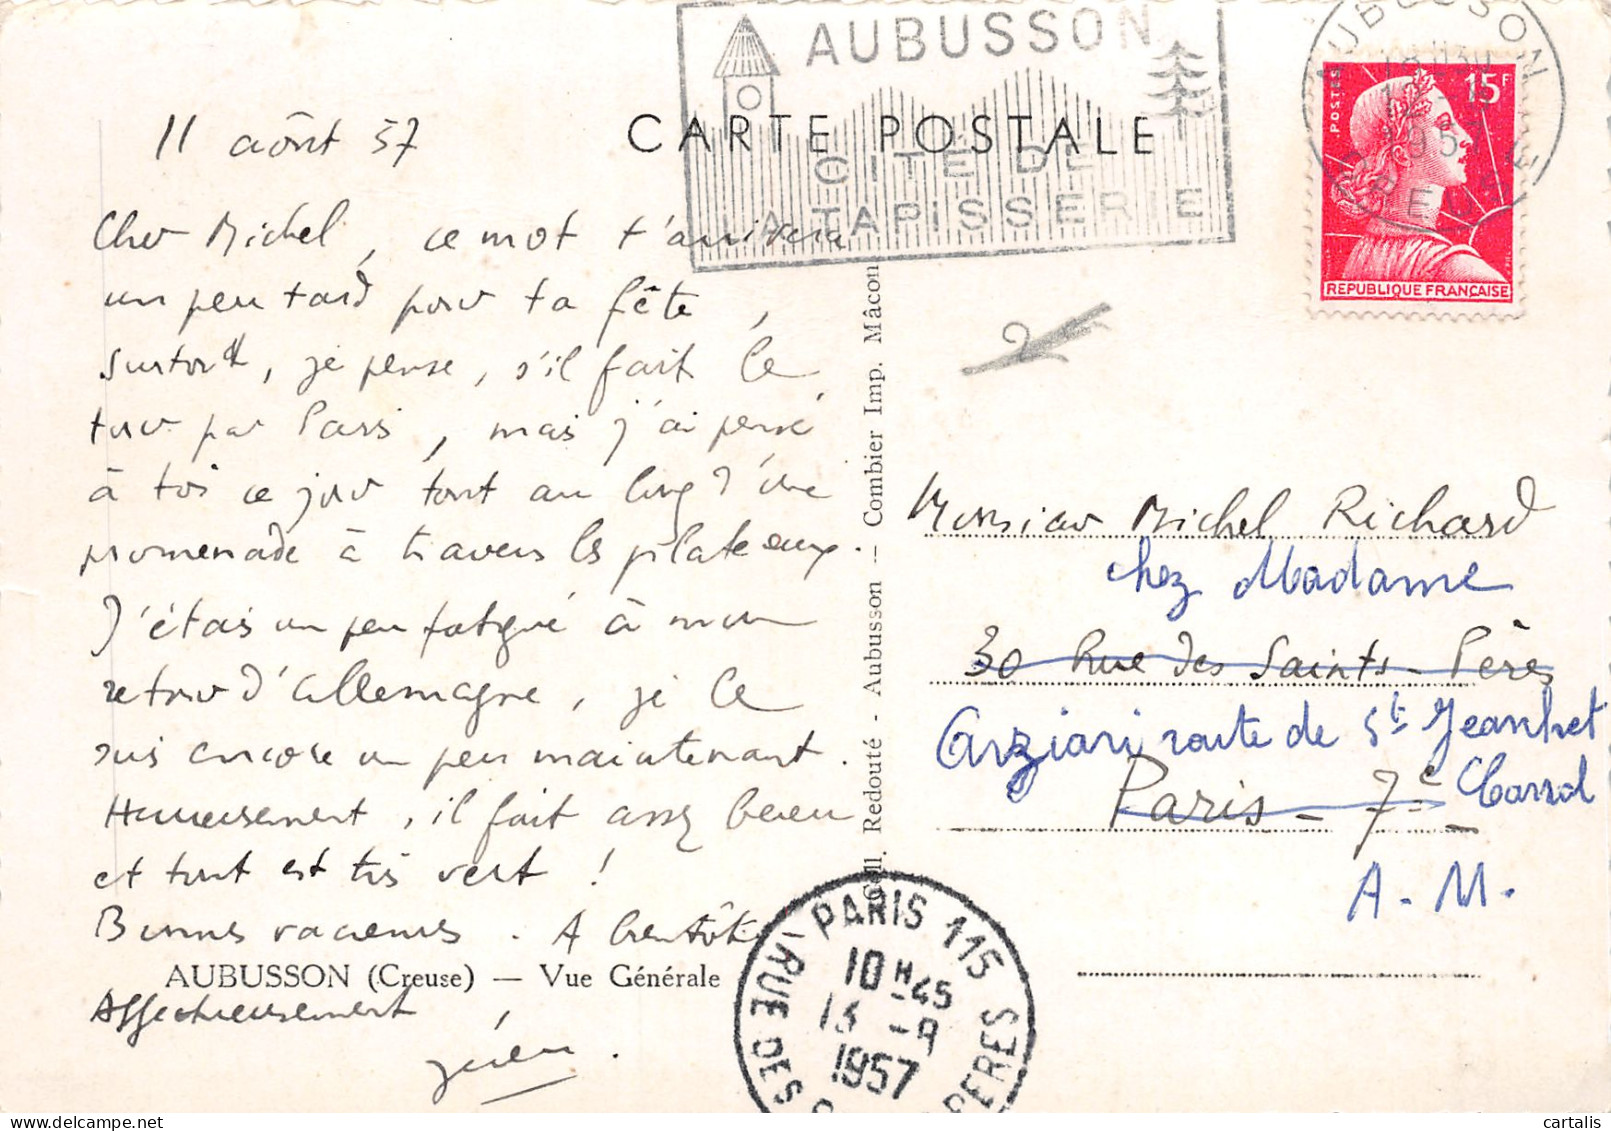 AUBUSSON
CITÉ DE
LA TAPISSERIE
AUBUSSON
1957
CREUSE
POSTES
15F
REPUBLIQUE FRANÇAISE
CARTE POSTALE
11 août 57
Cher Michel, ce mot t'arrivera
un peu tard pour ta fête,
surtout, je pense, s'il fait le
tour par Paris, mais j'ai pensé
à toi ce jour tout au long d'une
promenade à travers les plateaux.
J'étais un peu fatigué à mon
retour d'Allemagne, je le
suis encore un peu maintenant.
Heureusement, il fait assez beau
et tout est très vert !
Bonnes vacances. A bientôt
AUBUSSON (Creuse) — Vue Générale
Affectueusement,
Coll. Redouté - Aubusson — Combier Imp. Mâcon
Monsieur Michel Richard
chez Madame
30 Rue des Saints-Pères
Arziari route de St Jeannet
Paris - 7e
A.-M.
PARIS 115
10H45
13 -8
1957
RUE DES PERES
cartalis